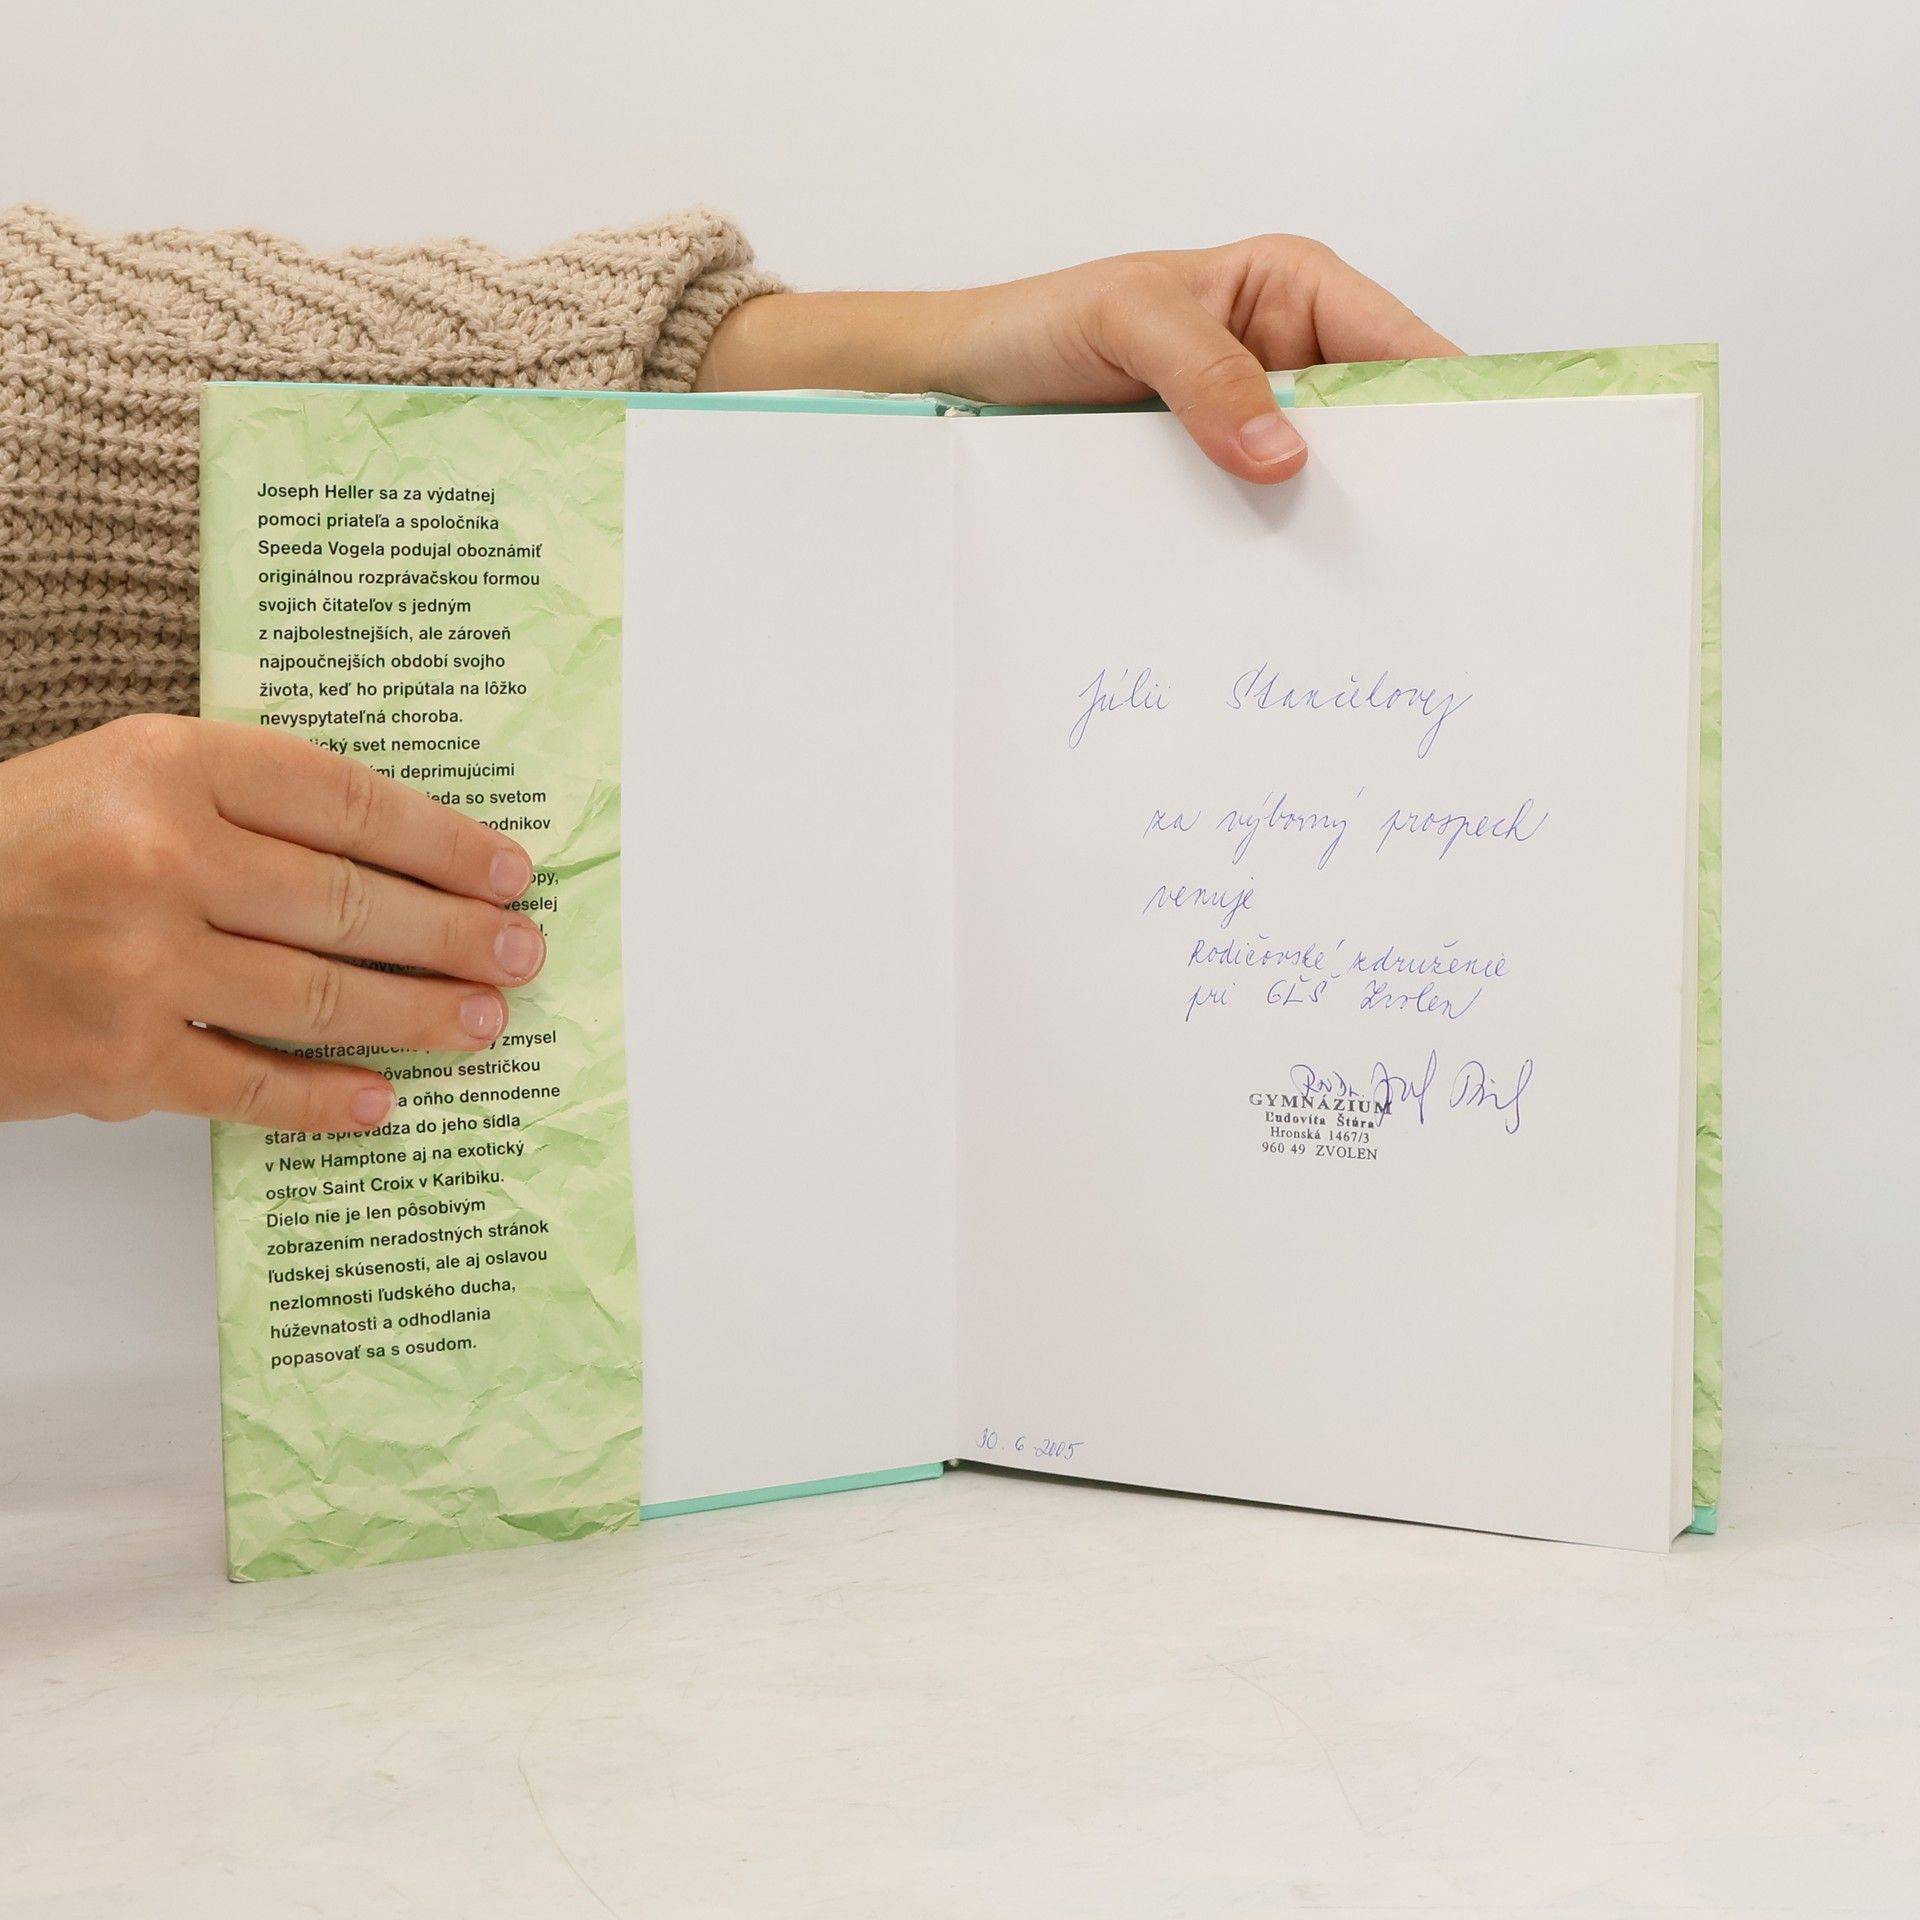 Joseph Heller sa za výdatnej
pomoci priateľa a spoločníka
Speeda Vogela podujal oboznámiť
originálnou rozprávačskou formou
svojich čitateľov s jedným
z najbolestnejších, ale zároveň
najpoučnejších období svojho
života, keď ho pripútala na lôžko
nevyspytateľná choroba.
svet nemocnice
deprimujúcimi
so svetom
veselej
zmysel
sestričkou
oňho dennodenne
stará a sprevádza do jeho sídla
v New Hamptone aj na exotický
ostrov Saint Croix v Karibiku.
Dielo nie je len pôsobivým
zobrazením neradostných stránok
ľudskej skúsenosti, ale aj oslavou
nezlomnosti ľudského ducha,
húževnatosti a odhodlania
popasovať sa s osudom.
Júlii Stančekovej
za výborný prospech
venuje
Rodičovské združenie
pri GĽŠ Zvolen
RNDr.
GYMNÁZIUM
Ľudovíta Štúra
Hronská 1467/3
960 49 ZVOLEN
30. 6. 2005